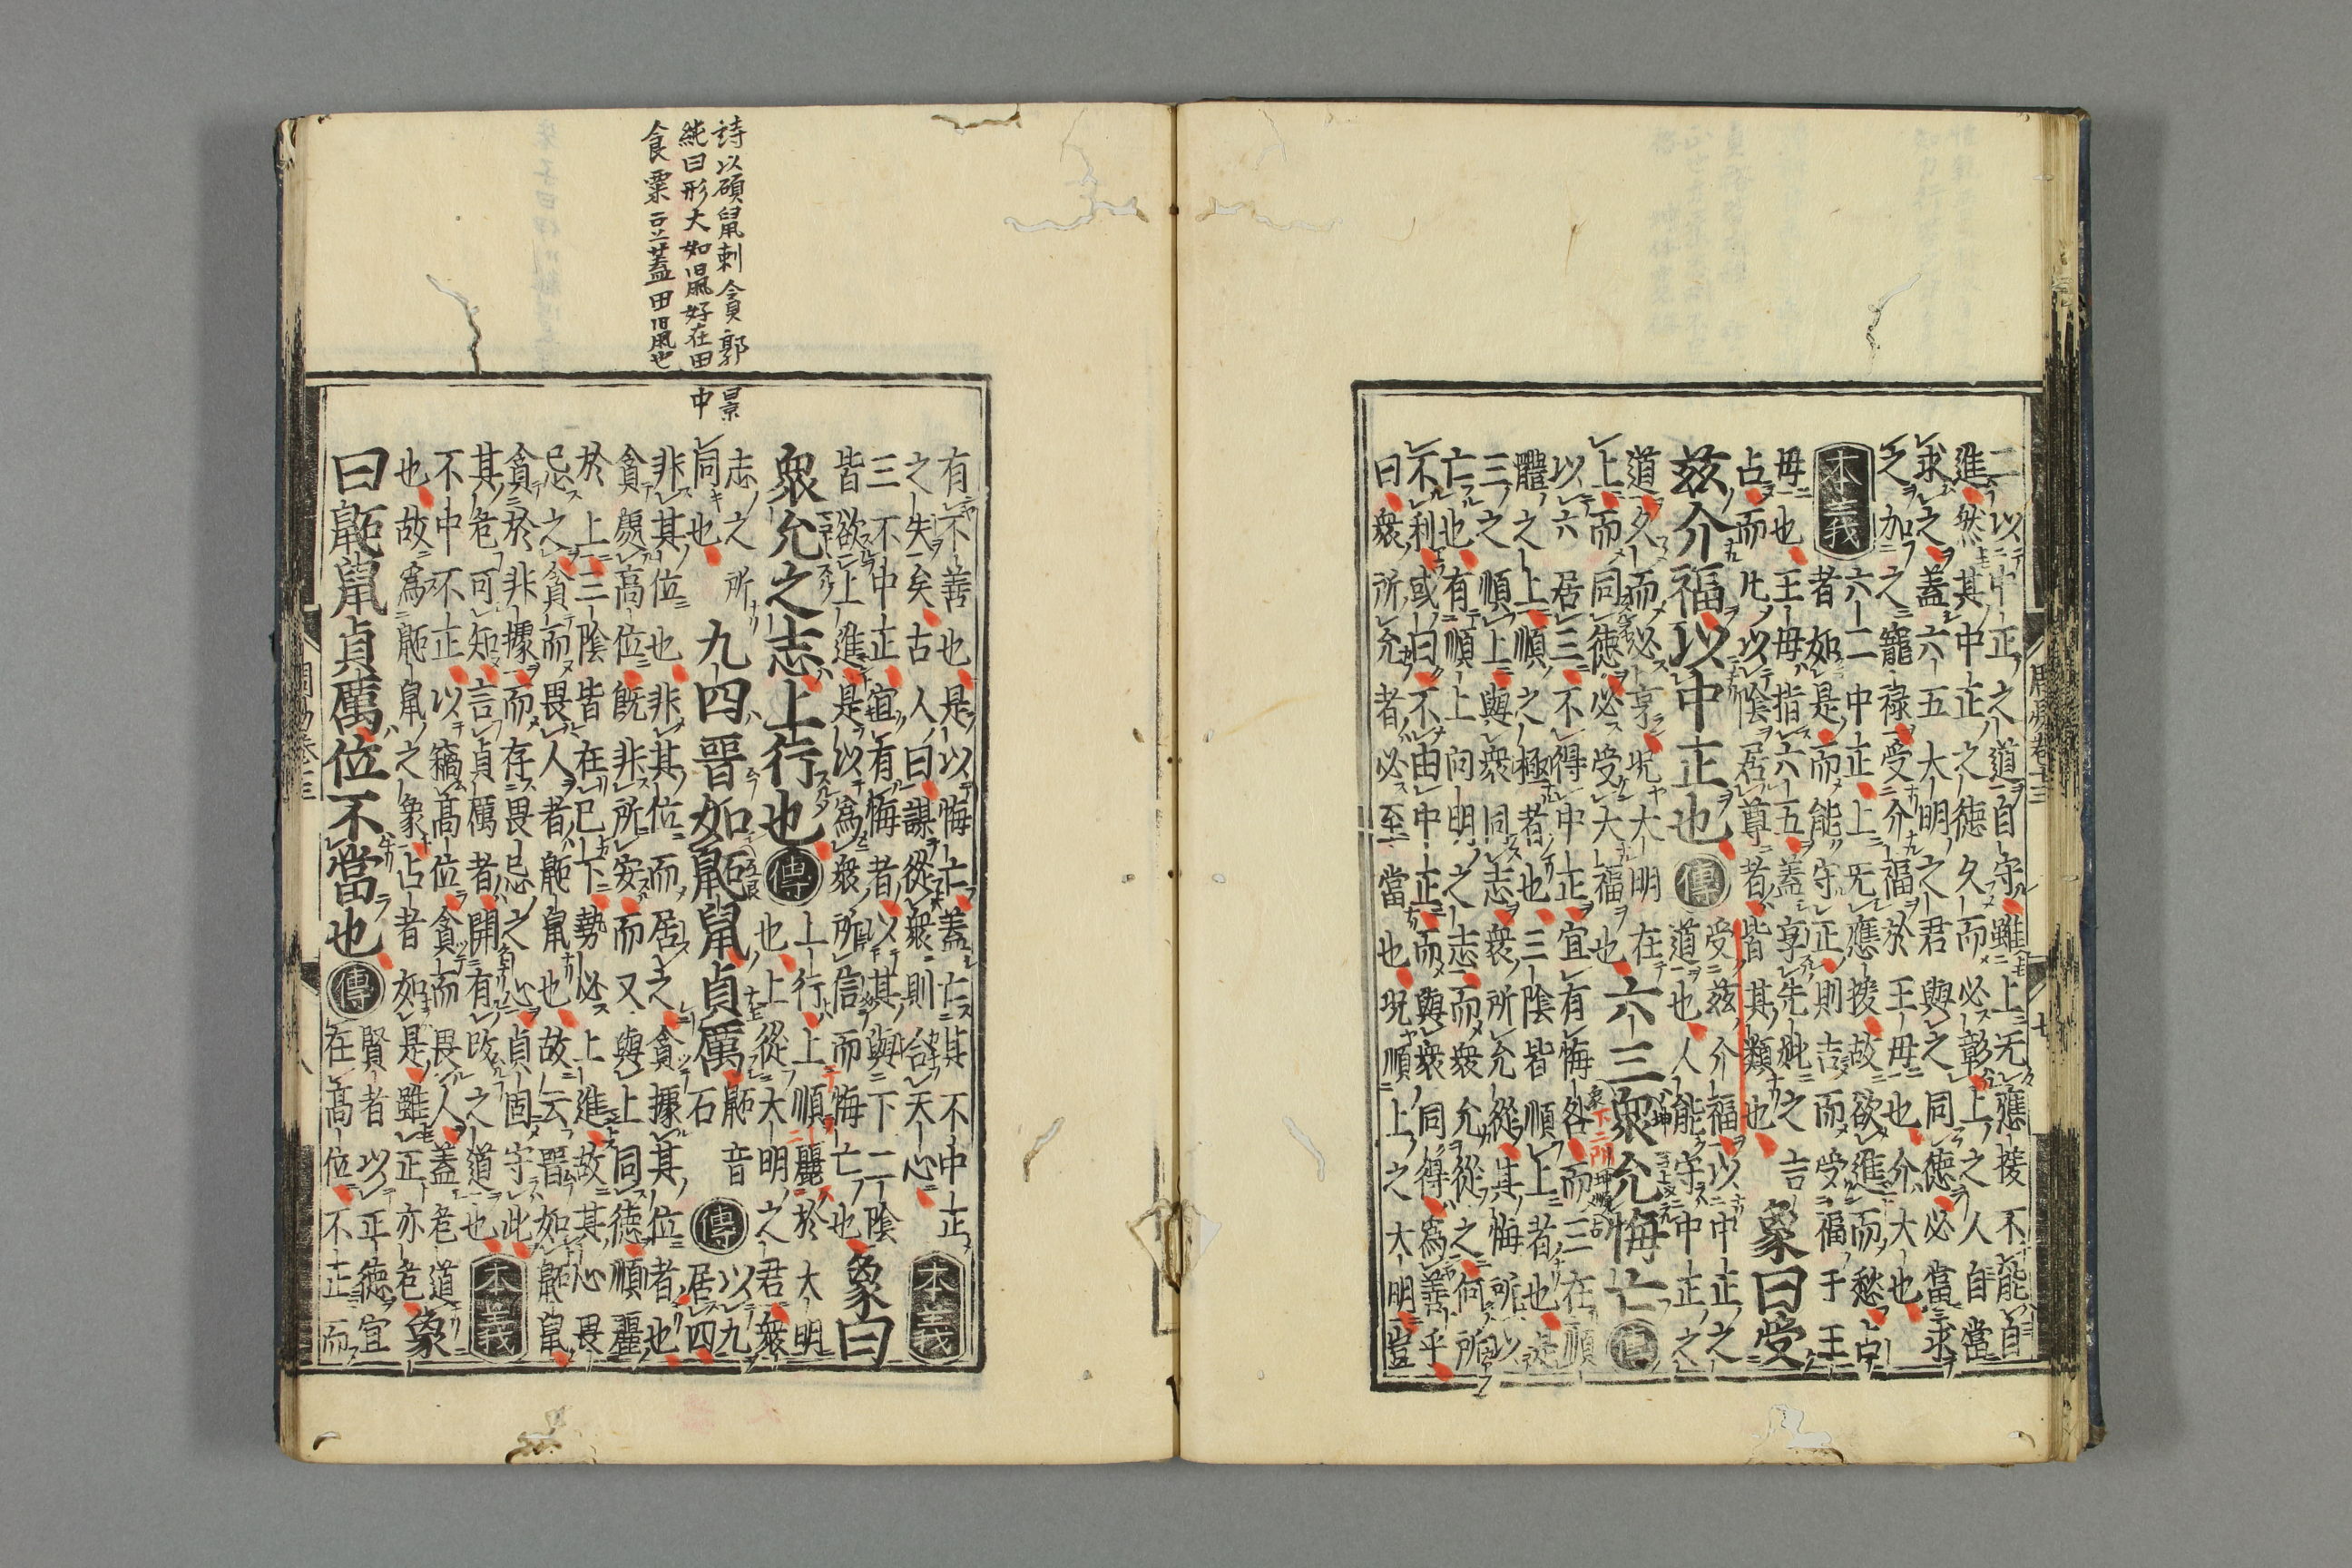 二以中正之道自守雖上无應援不能自
進然其中正之德久而必彰上之人自當
求之蓋六五大明之君與之同德必當求
之加之寵祿受介福於王母也介大也
本義 六二中正上无應援故欲進而愁占
者如是而能守正則吉而受福于王
母也王母指六五蓋享先妣之吉
占而凡以陰居尊者皆其類也 象曰受
茲介福以中正也 傳 受茲介福以中正之
道也人能守中正之
道久而必亨況大明在
上而同德必受大福也 六三衆允悔亡 傳
以六居三不得中正宜有悔咎而三在順
體之上順之極者也三陰皆順上者也是
三之順上與衆同志衆所允從其悔所以
亡也有順上向明之志而衆允從之何所
不利或曰不由中正而與衆同得爲善乎
曰衆所允者必至當也況順上之大明豈
周易卷十三 七
詩以碩鼠刺貪郭景
純曰形大如鼠好在田中
食粟豆蓋田鼠也
有不善也是以悔亡蓋亡其不中正
之失矣古人曰謀從衆則合天心 本義
三不中正宜有悔者以其與下二陰
皆欲上進是以爲衆所信而悔亡也 象曰
衆允之志上行也 傳 上行上順麗於大明
也上從大明之君衆
志之所
同也 九四晉如鼫鼠貞厲 鼫音
石 傳 以九
居四
非其位也非其位而居之貪據其位者也
貪處高位既非所安而又與上同德順麗
於上三陰皆在已下勢必上進故其心畏
忌之貪而畏人者鼫鼠也故云晉如鼫鼠
貪於非據而存畏忌之心貞固守此
其危可知言貞厲者開有改之道也 本義
不中不正以竊高位貪而畏人蓋危道
也故爲鼫鼠之象占者如是雖正亦危 象
曰鼫鼠貞厲位不當也 傳 賢者以正德宜
在高位不正而